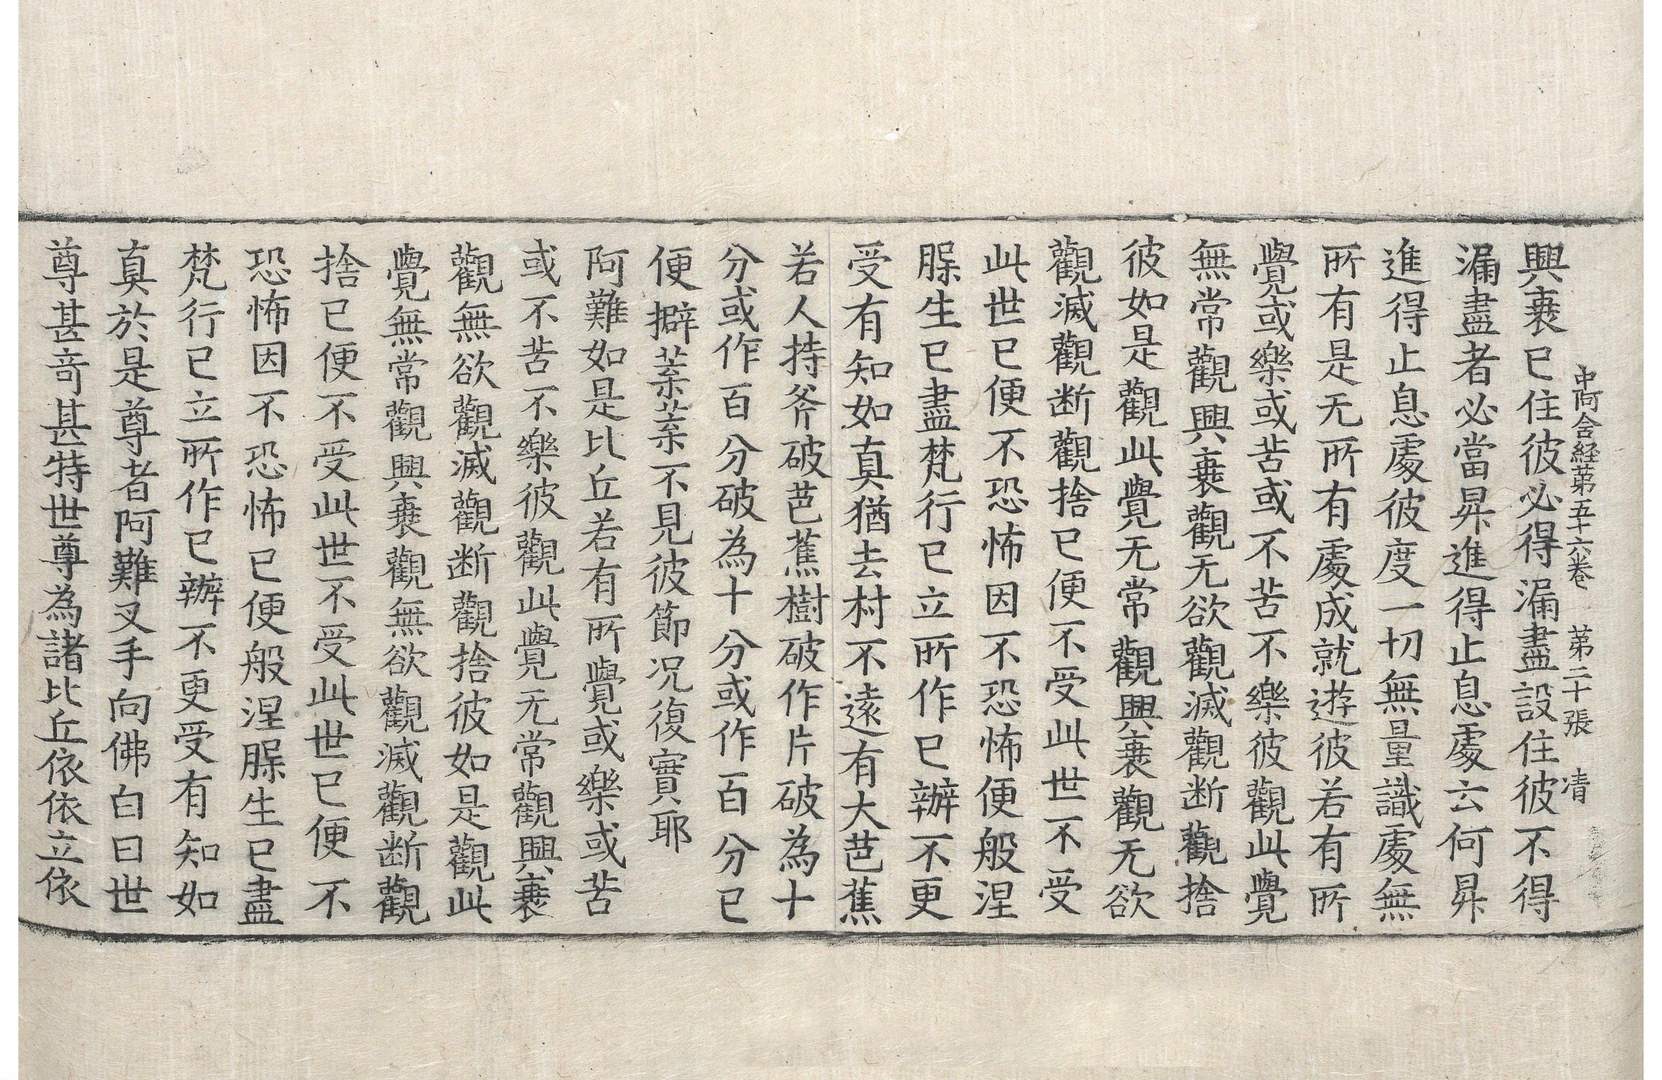 中阿含経第五十六卷　第二十張　凊
興衰已住彼必得漏盡設住彼不得
漏盡者必當昇進得止息處云何昇
進得止息處彼度一切無量識處無
所有是无所有處成就遊彼若有所
覺或樂或苦或不苦不樂彼觀此覺
無常觀興衰觀无欲觀滅觀断觀捨
彼如是觀此覺无常觀興衰觀无欲
觀滅觀断觀捨已便不受此世不受
此世已便不恐怖因不恐怖便般涅
脲生已盡梵行已立所作已辦不更
受有知如真猶去村不遠有大芭蕉
若人持斧破芭蕉樹破作片破為十
分或作百分破為十分或作百分已
便擗葉葉不見彼節況復實耶
阿難如是比丘若有所覺或樂或苦
或不苦不樂彼觀此覺无常觀興衰
觀無欲觀滅觀断觀捨彼如是觀此
覺無常觀興衰觀無欲觀滅觀断觀
捨已便不受此世不受此世已便不
恐怖因不恐怖已便般涅脲生已盡
梵行已立所作已辦不更受有知如
真於是尊者阿難叉手向佛白曰世
尊甚奇甚特世尊為諸比丘依依立依